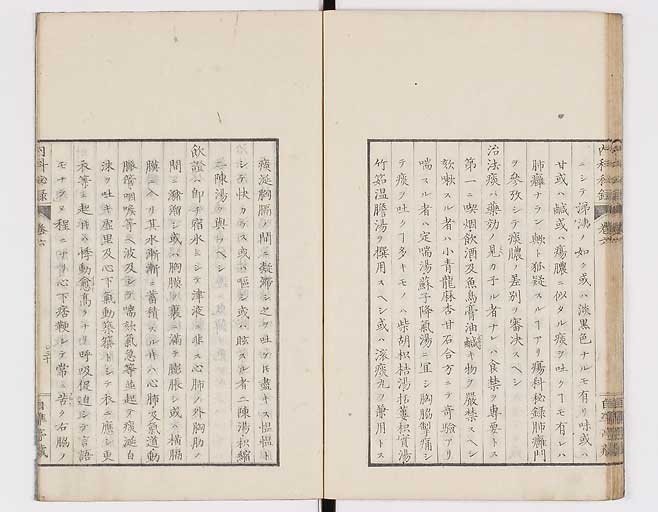 ニシテ涕洟ノ如ク或ハ淡黒色ナルモ有リ味或ハ
甘或ハ鹹或ハ瘍膿ニ似タル痰ヲ吐クヿモ有レハ
肺癰ナラン歟ト狐疑スルヿアリ瘍科秘録肺癰門
ヲ參攷シテ痰膿ノ差別ヲ審决スヘシ
治法痰ハ藥効ノ見カ子ル者ナレハ食禁ヲ專要トス
第一ニ喫烟飲酒及魚鳥膏油鹹キ物ヲ嚴禁スヘシ
欬嗽スル者ハ小青龍麻杏甘石合方ニテ奇驗アリ
喘スル者ハ定喘湯蘇子降氣湯ニ宜シ胸脇掣痛シ
テ痰ヲ吐クヿ多キモノハ柴胡枳桔湯括蔞枳實湯
竹筎温膽湯ヲ撰用スヘシ或ハ滚痰丸ヲ兼用トス
内科秘録
卷六
痰涎胸膈ノ間ニ凝滯シ之ヲ吐テモ盡キス愠愠ト
シテ快カラス或ハ嘔シ或ハ眩スル者二陳湯枳縮
二陳湯ヲ與フヘシ
飲證ハ即チ宿水ニシテ津液ニ非ス心肺ノ外胸肋ノ
間ニ瀦溜シ或ハ胸膜ノ裏ニ滿テ膨脹シ或ハ横膈
膜ニ入リ其水漸漸ニ蓄積スル片ハ心肺及氣道動
脈管咽喉等ニ波及シテ喘欬氣急等並起テ痰涎白
沫ヲ吐キ虚里及心下氣動築築トシテ衣ニ應シ更
衣等ニ起
悸動愈高
呼吸促迫シテ言語
モナラヌ程ニナリ心下痞鞕シテ常ニ苦ク右脇ノ
内科秘録
卷六